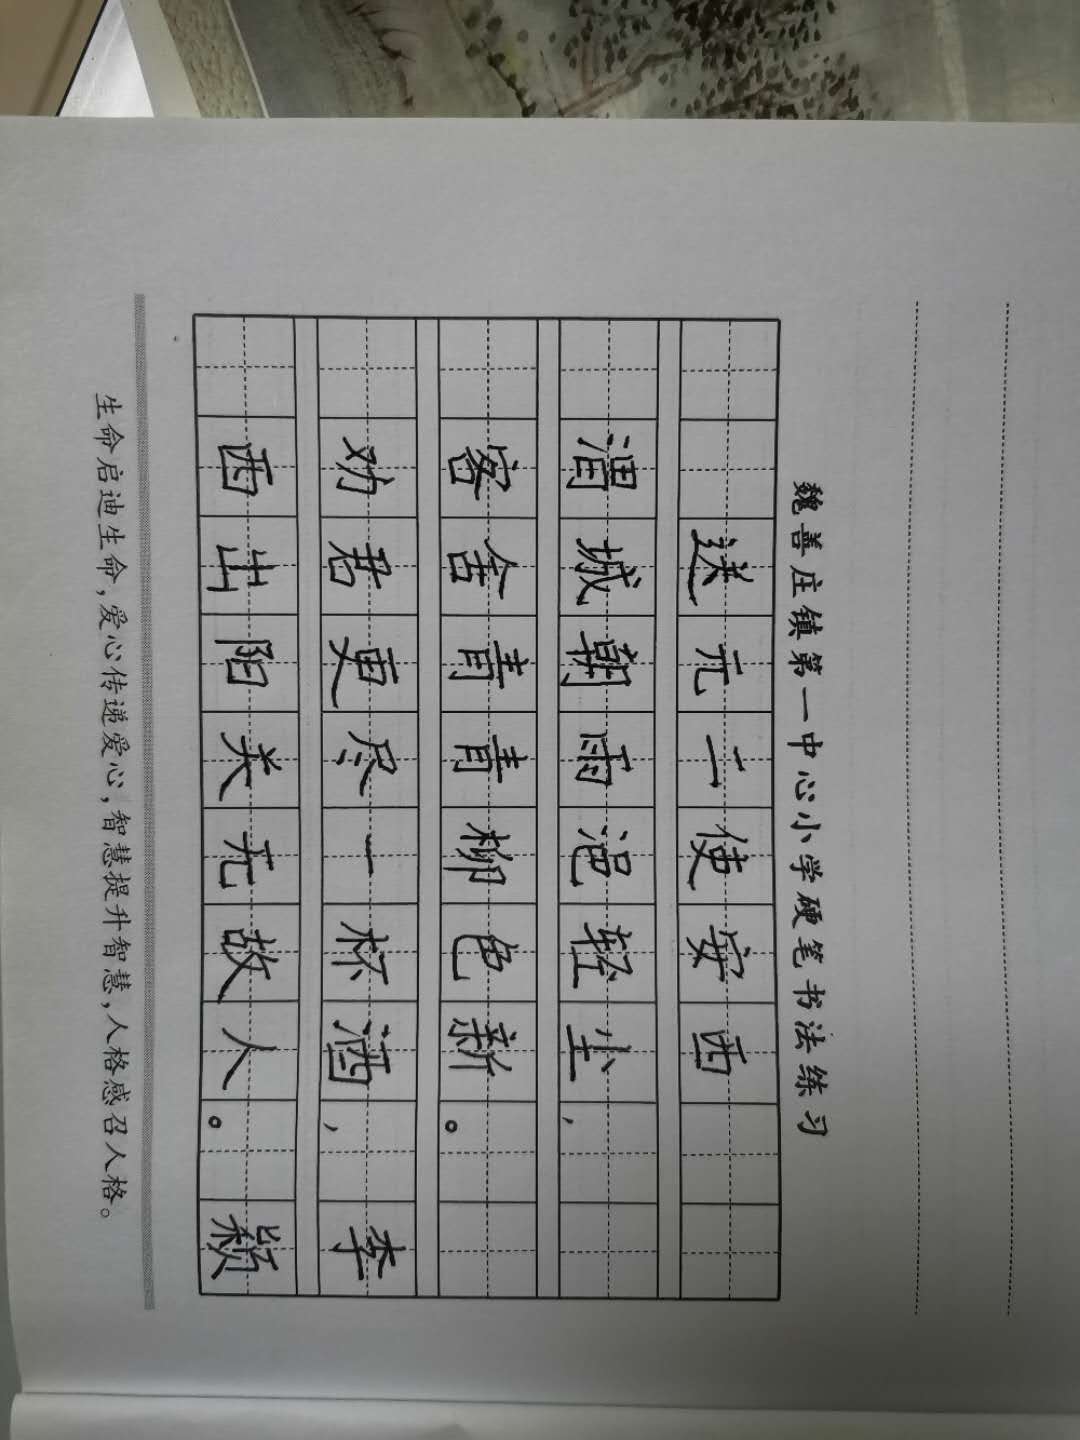 魏善庄镇第一中心小学硬笔书法练习
送元二使安西
渭城朝雨浥轻尘，
客舍青青柳色新。
劝君更尽一杯酒，李
西出阳关无故人。颖
生命启迪生命，爱心传递爱心，智慧提升智慧，人格感召人格。